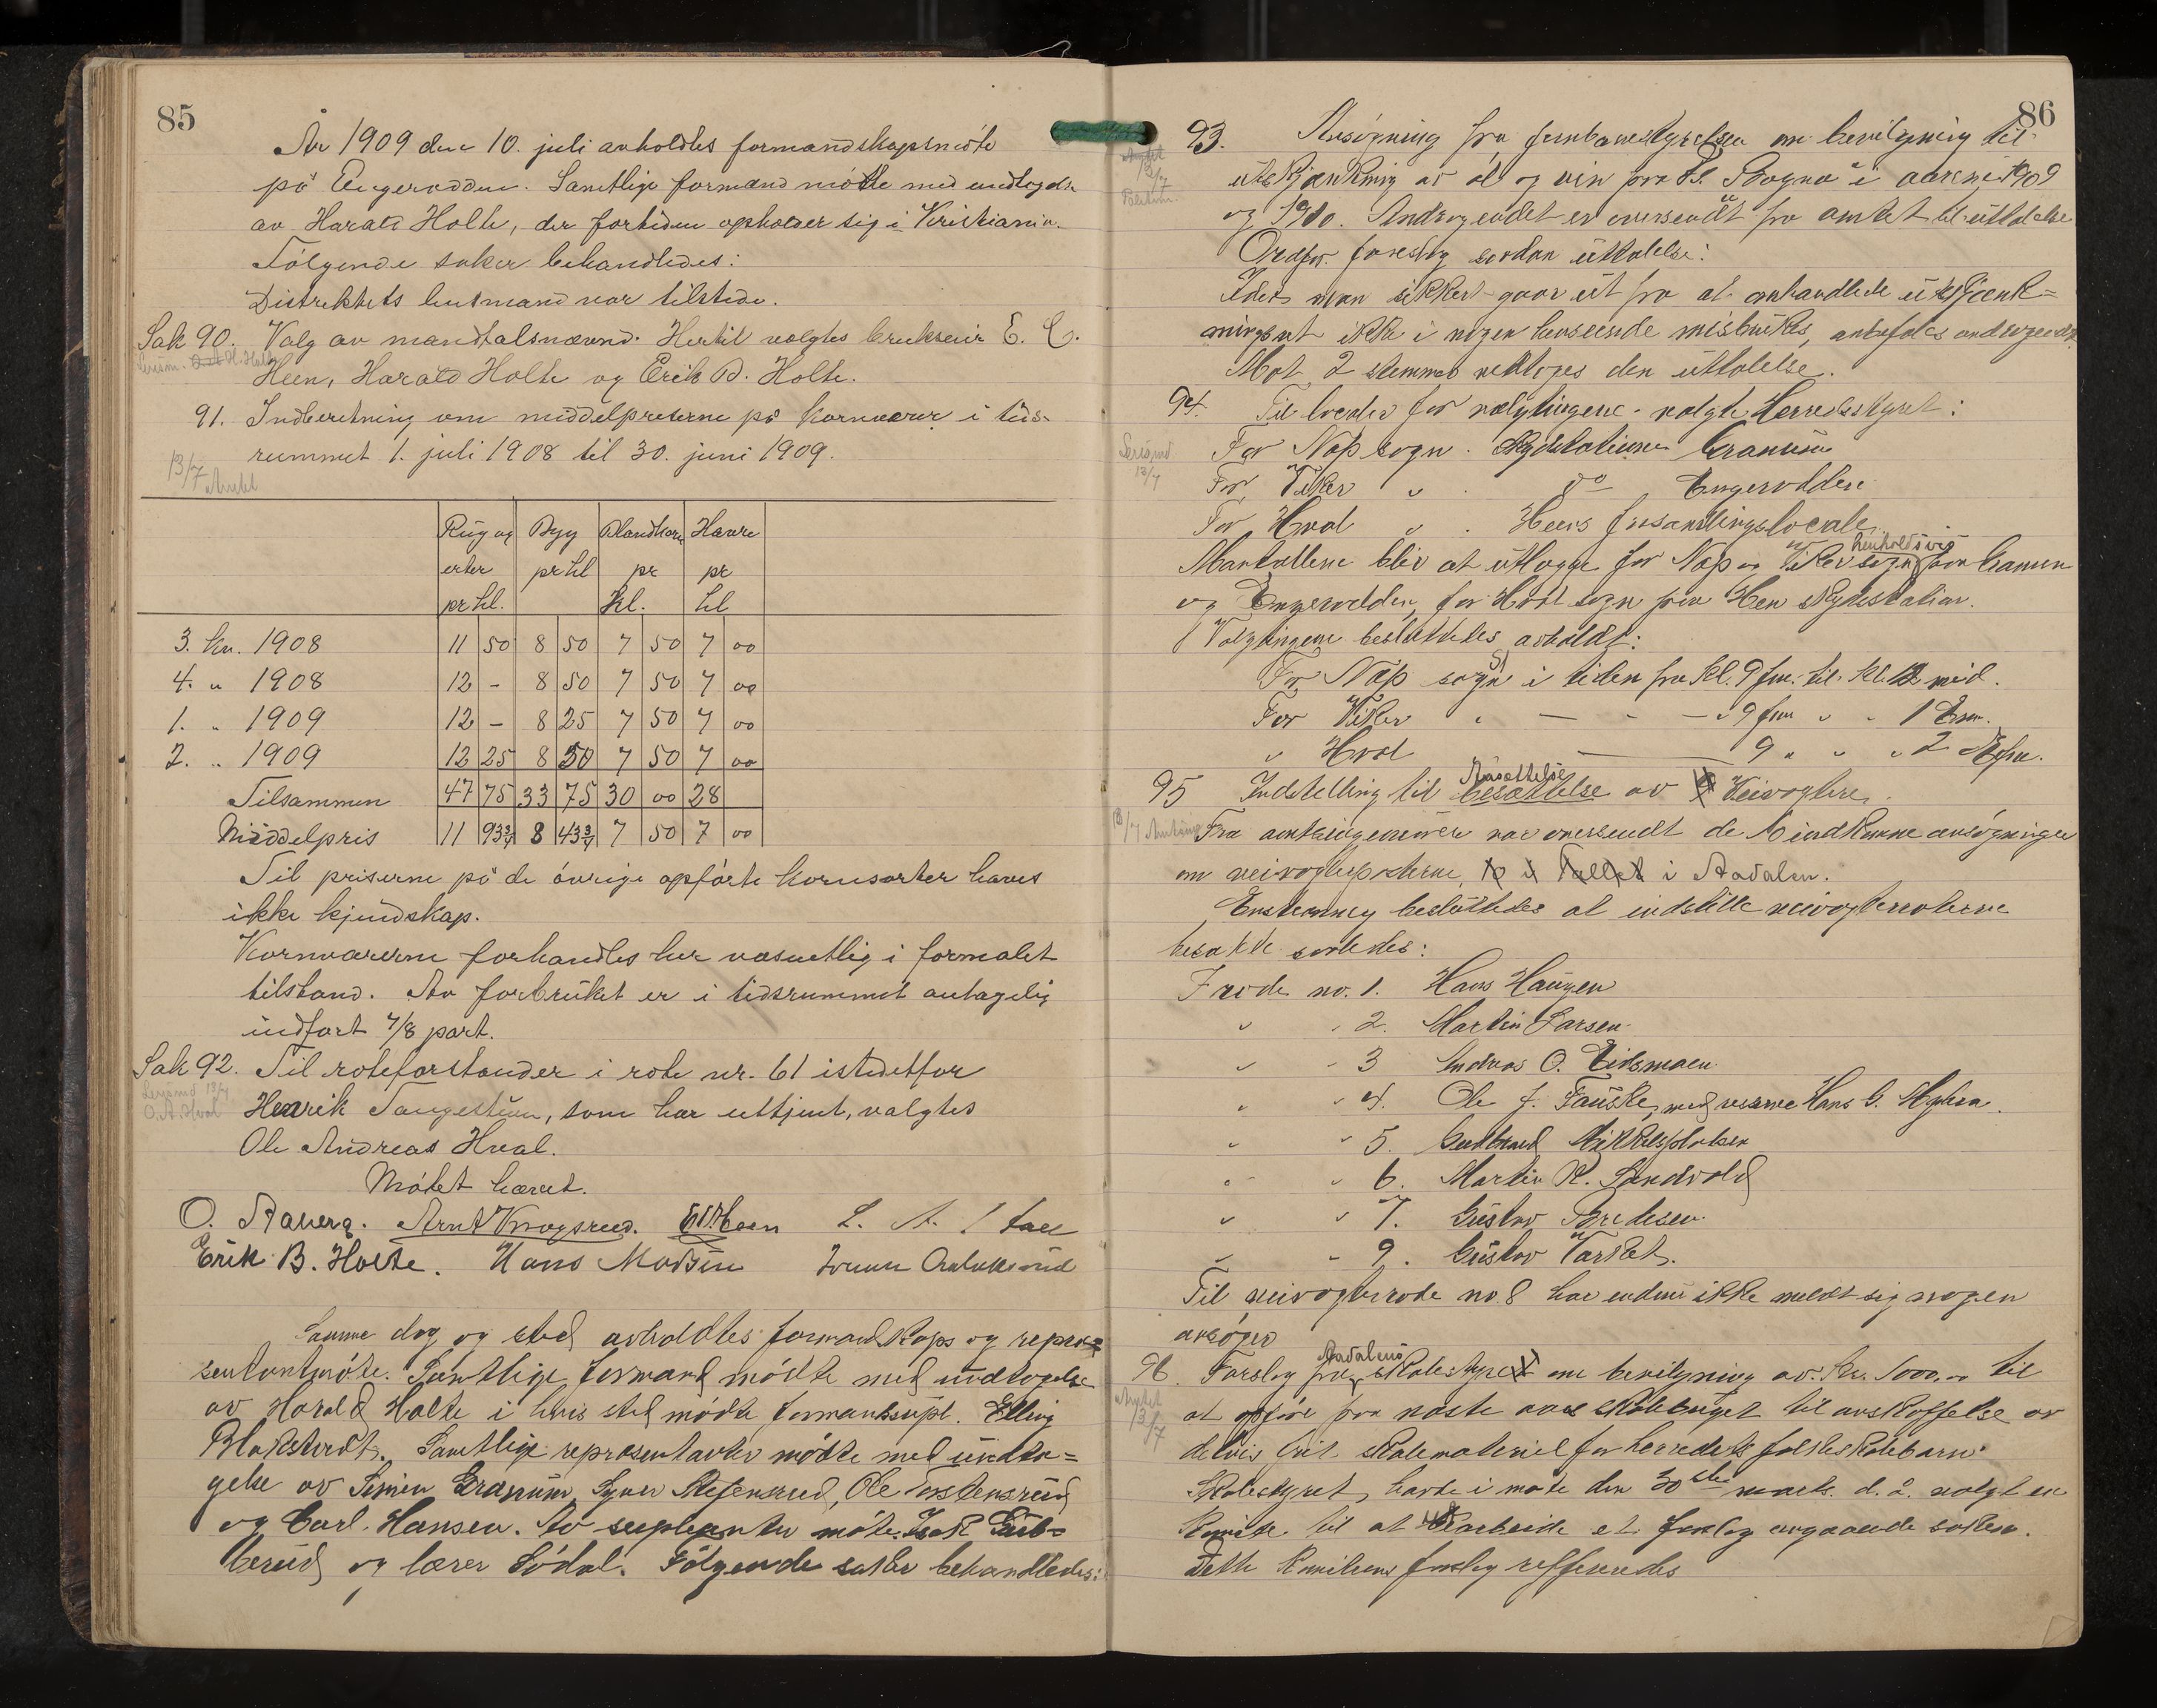 85
År 1909 den 10. juli avholdtes formandskapsmöte
på Engerodden. Samtlige formænd mötte med undtagelse
av Harald Holte, der fortiden opholder sig i Kristiania.
Følgende saker behandledes:
Distriktets lensmand var tilstede.
Sak 90. Valg av mandtalsnævnd. Hertil valgtes brukseier E. E.
Heen, Harald Holte og Erik B. Holte.
91. Indberetning om middelpriserne på kornvarer i tids-
rummet 1. juli 1908 til 30. juni 1909.
13/7
Rug og Byg Blandkorn Havre
erter pr hl pr pr
pr hl. hl. hl
3. kv. 1908 11 50 8 50 7 50 7 00
4. " 1908 12 - 8 50 7 50 7 00
1. " 1909 12 - 8 25 7 50 7 00
2. " 1909 12 25 8 50 7 50 7 00
Tilsammen 47 75 33 75 30 00 28
Middelpris 11 93¾ 8 43¾ 7 50 7 00
Til priserne på de övrige opförte kornsorter haves
ikke kjendskap.
Kornvarerne forhandles her væsentlig i formalet
tilstand. Av forbruket er i tidsrummet antagelig
indført 7/8 part.
Sak 92. Til roteforstander i rote nr. 61 istedetfor
Henrik Tangestuen, som har uttjent, valgtes
Ole Andreas Hval.
Mötet hævet.
O. Aaberg. Arnt Krogsrud. E. E. Heen L. A.
Erik B. Holte. Hans Madsen
Samme dag og sted avholdtes formandskaps og repræ-
sentantmöte. Samtlige formænd mödte med undtagelse
av Harald Holte i hvis sted mödte formandsupl. Elling
Blakstvedt. Samtlige repræsentanter mödte med undta-
gelse av Simen Granum, Syver Stefensrud, Ole Torstensrud
og Carl Hansen. Av supleanter mötte Isak Gul-
berud og lærer Södal. Fölgende saker behandledes:
86
93. Ansögning fra jernbanestyrelsen om bevilgning til
utskjænkning av öl og vin fra D/S "Bægna" i aarene 1909
og 1910. Andragendet er oversendt fra amtet til uttalelse
Ordfør. foreslog saadan uttalelse:
Idet man sikkert gaar ut fra at omhandlede utskjænk-
ningsret ikke i nogen henseende misbrukes, anbefales andragendet.
Mot 2 stemmer vedtoges den uttalelse.
94. Til lokaler for valgtingene valgte Herredsstyret:
For Næs sogn. Skydsstationen Granum
For Viker " . do Engerodden
For Hval " . Heens forsamlingslocale
Mantallene blir at utlægge for Næs og Viker sogn henholdsvis paa Granum
og Engerodden, for Hval sogn paa Hen Skydsstation.
Valgtingene besluttedes avholdt:
For Næs sogn i tiden fra kl. 9 fm. til kl. 12 mid.
For Viker " — " — " 9 fm " " 1 Em.
" Hval — 9 " " " 2
95 Indstilling til Ansættelse besættelse av 9 Veivogtere.
Fra amtsingeniören var oversendt de indkomne ansögninger
om veivogterposterne, i Aadalen.
Enstemmig besluttedes at indstille veivogterroterne
besatte saaledes:
I rode no. 1. Hans Haugen
" " 2. Martin Larsen
" " 3 Andreas O. Eidsmoen
" " 4. Ole J. Fauske, med reserve Hans G. Myhra.
" " 5. Gudbrand Mikkelsplassen
" " 6. Martin R. Sandvold
" " 7. Gustav Bredesen
" " 9. Gustav
Til veivogterrode no. 8 har endnu ikke meldt sig nogen
ansöger
96. Forslag fra Aadalens skolestyret om bevilgning av Kr. 1000,00 til
at opföre paa næste aars skolebudget til anskaffelse av
delvis frit skolemateriel for herredets folkeskolebarn.
Skolestyret, havde i møte den 30te marts d. å. valgt en
komite til at utarbeide et forslag angaaende saken.
Dette komiteens forslag refferertes